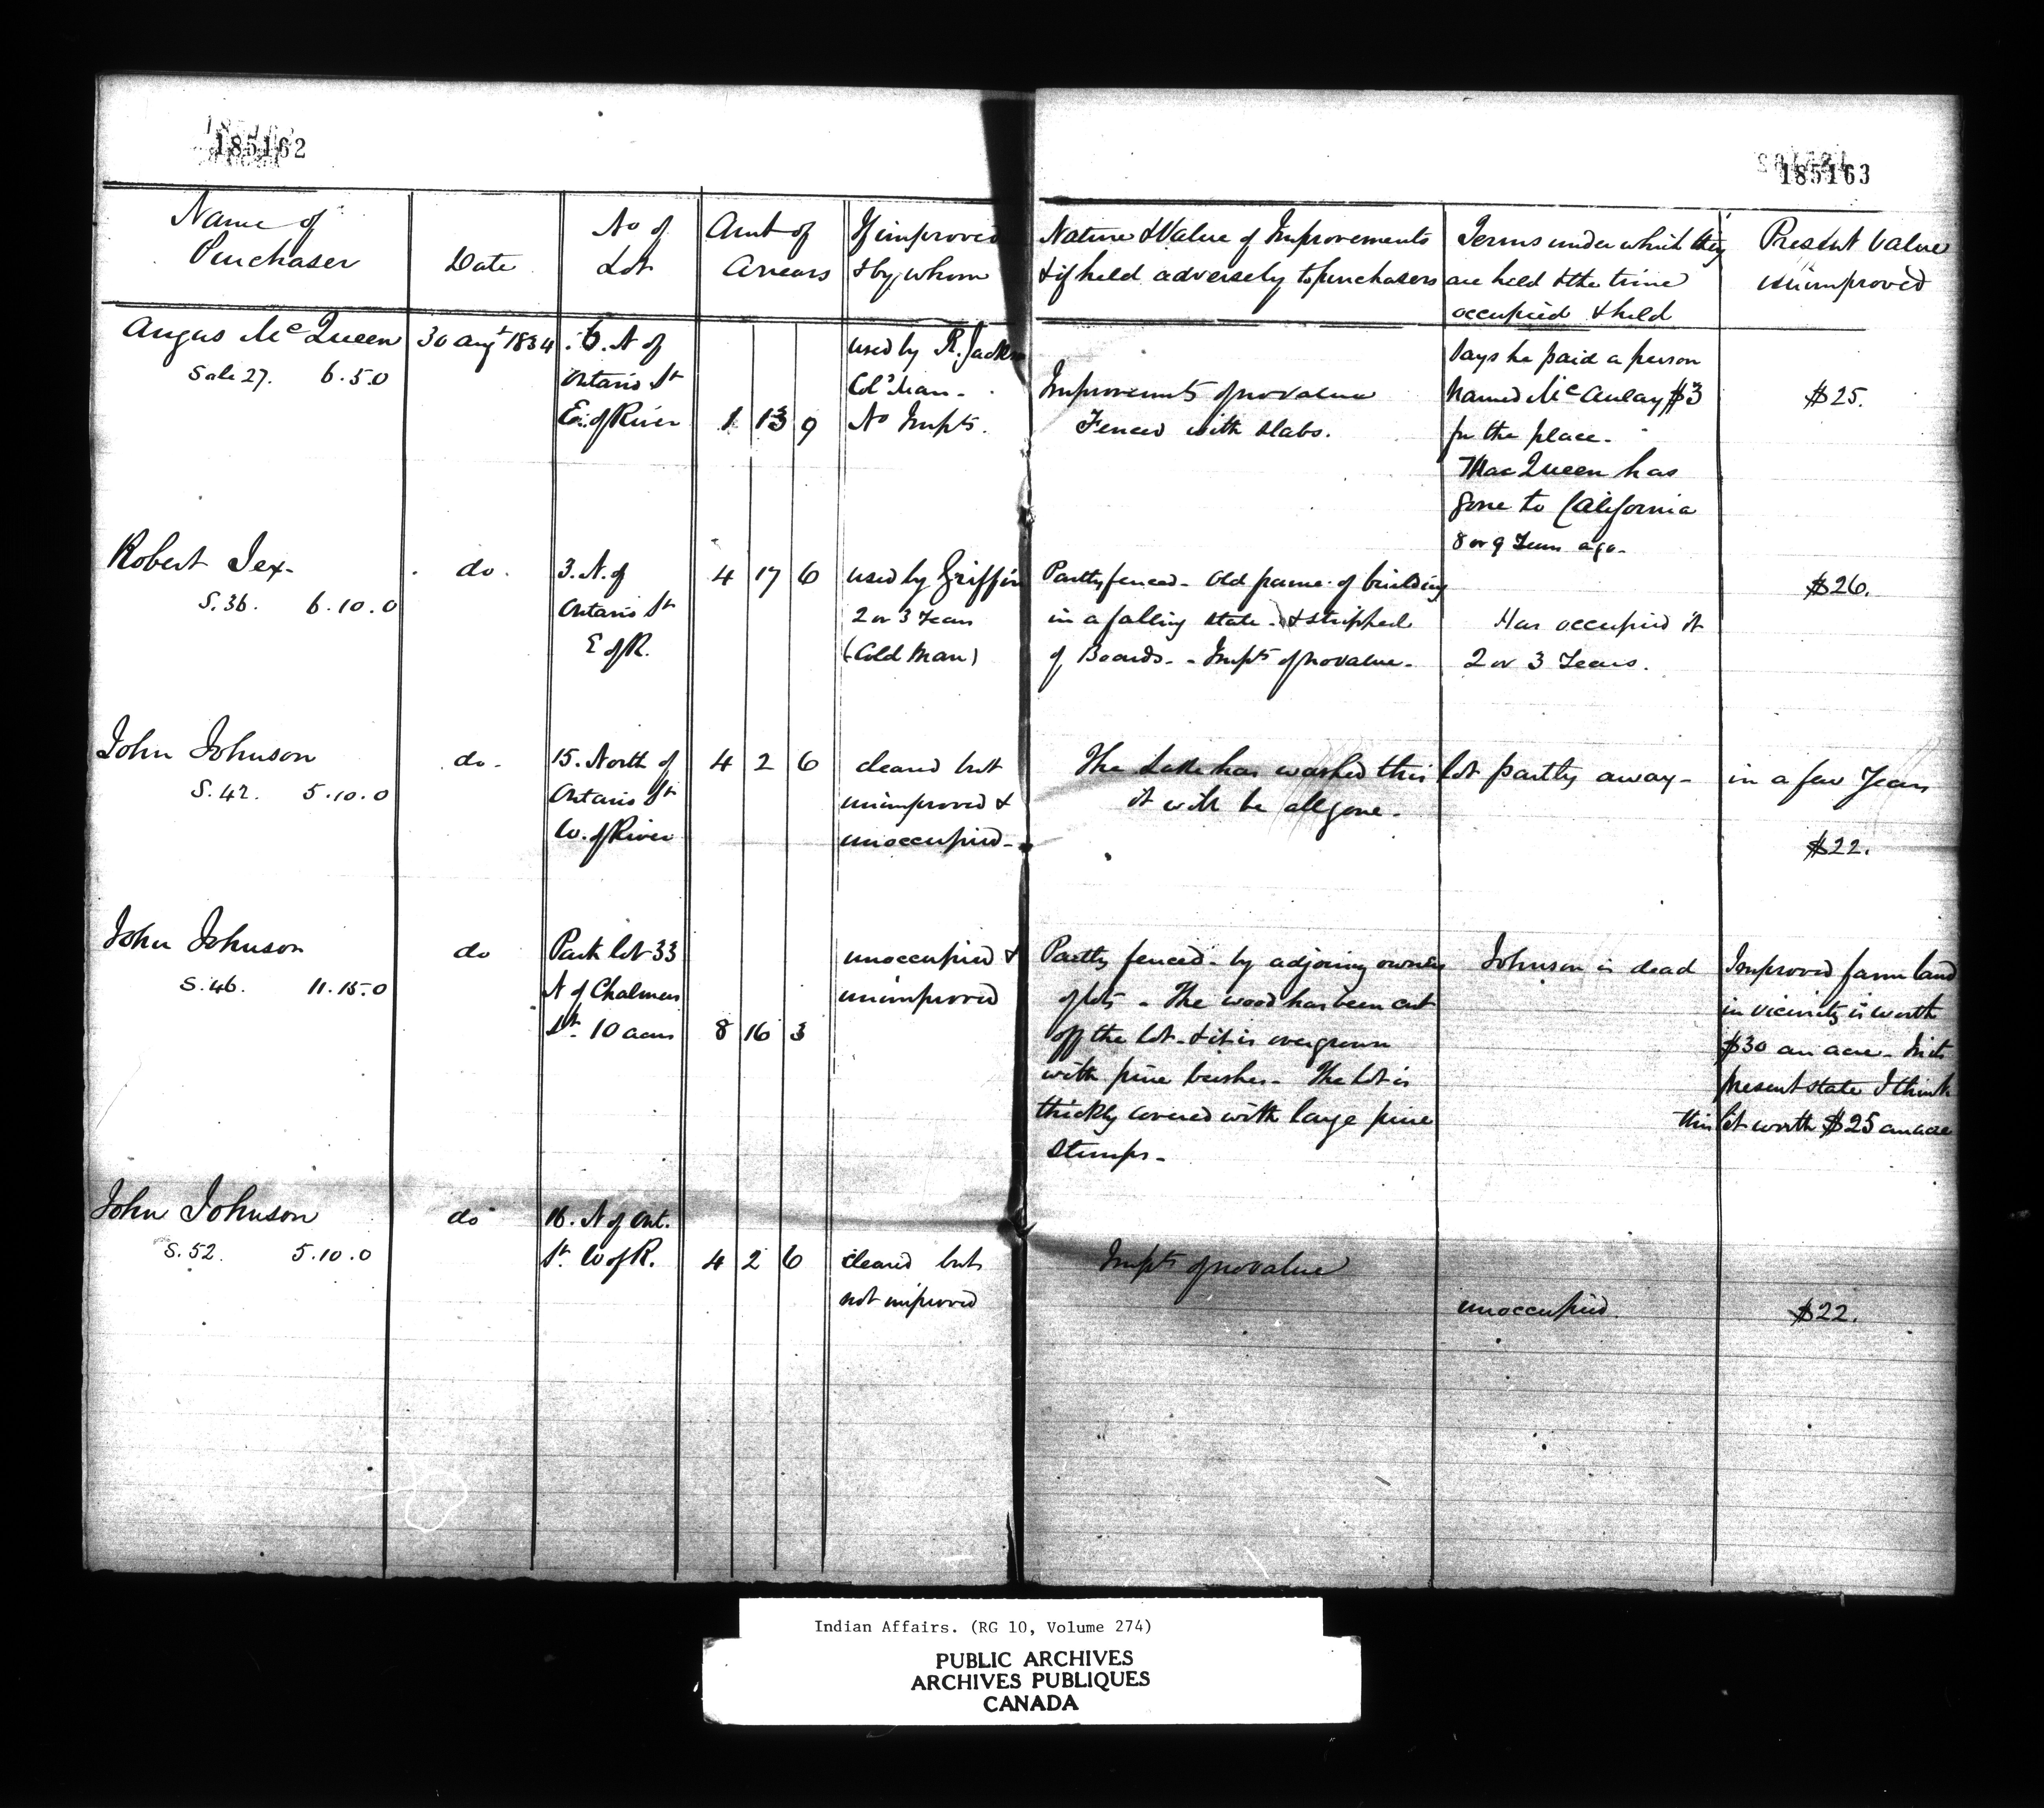 185162
185163
Name of Purchaser
Date
No of Lot
Amt of Arrears
If improved & by whom
Nature & Value of Improvements & if held adversely to purchasers
Terms under which they are held & the time occupied & held
Present Value unimproved
Angus McQueen
Sale 27. 6.5.0
30 Augt 1834
6. N of
Ontario St
E. of River
1 13 9
used by R. Jackson
Cold Man -
No Impts.
Improvements of no value
Fenced with slabs.
Says he paid a person
named McAulay $3
for the place -
MacQueen has
gone to California
8 or 9 Years ago -
$25.
Robert Jex -
S. 36. 6.10.0
do.
3. N. of
Ontario St
E of R.
4 17 6
used by Griffin
2 or 3 Years
(Cold Man)
Partly fenced - Old frame of building
in a falling state - & stripped
of Boards. - Impts of no value -
Has occupied it
2 or 3 Years.
$26.
John Johnson
S. 42. 5.10.0
do -
15. North of
Ontario St
W. of River
4 2 6
cleared but
unimproved &
unoccupied -
The Lake has washed this lot partly away - in a few Years
it will be all gone.
$22.
John Johnson
S. 46. 11.15.0
do
Park lot 33
N of Chalmers
St. 10 acres
8 16 3
unoccupied &
unimproved
Partly fenced - by adjoining owners
of lots - The wood has been cut
off the lot - & it is overgrown
with pine bushes - The lot is
thickly covered with large pine
stumps -
Johnson is dead
Improved farm land
in vicinity is worth
$30 an acre - In its
present state I think
this lot worth $25 an acre
John Johnson
S. 52. 5.10.0
do
16. N of Ont.
St. W of R.
4 2 6
cleared but
not improved
Impts of no value
unoccupied.
$22.
Indian Affairs. (RG 10, Volume 274)
PUBLIC ARCHIVES
ARCHIVES PUBLIQUES
CANADA